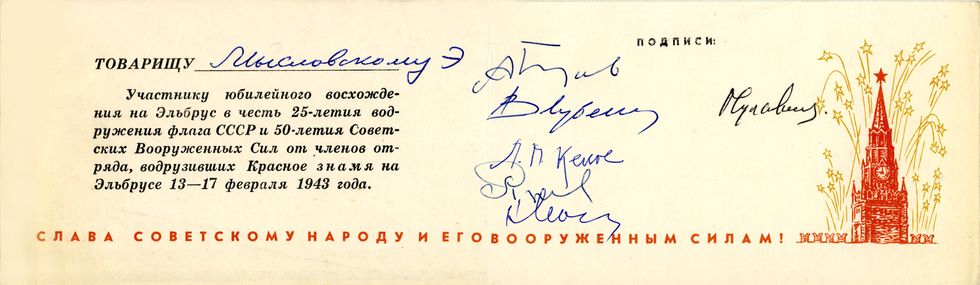 ПОДПИСИ:
ТОВАРИЩУ Мысловскому Э
Участнику юбилейного восхожде-
ния на Эльбрус в честь 25-летия вод-
ружения флага СССР и 50-летия Совет-
ских Вооруженных Сил от членов от-
ряда, водрузивших Красное знамя на
Эльбрусе 13—17 февраля 1943 года.
СЛАВА СОВЕТСКОМУ НАРОДУ И ЕГО ВООРУЖЕННЫМ СИЛАМ!